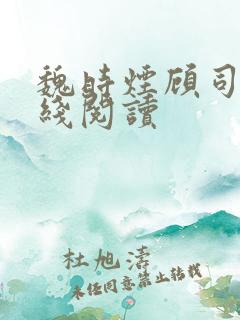 魏時煙顧司
綫閱讀
杜旭濤
未經同意禁止轉載